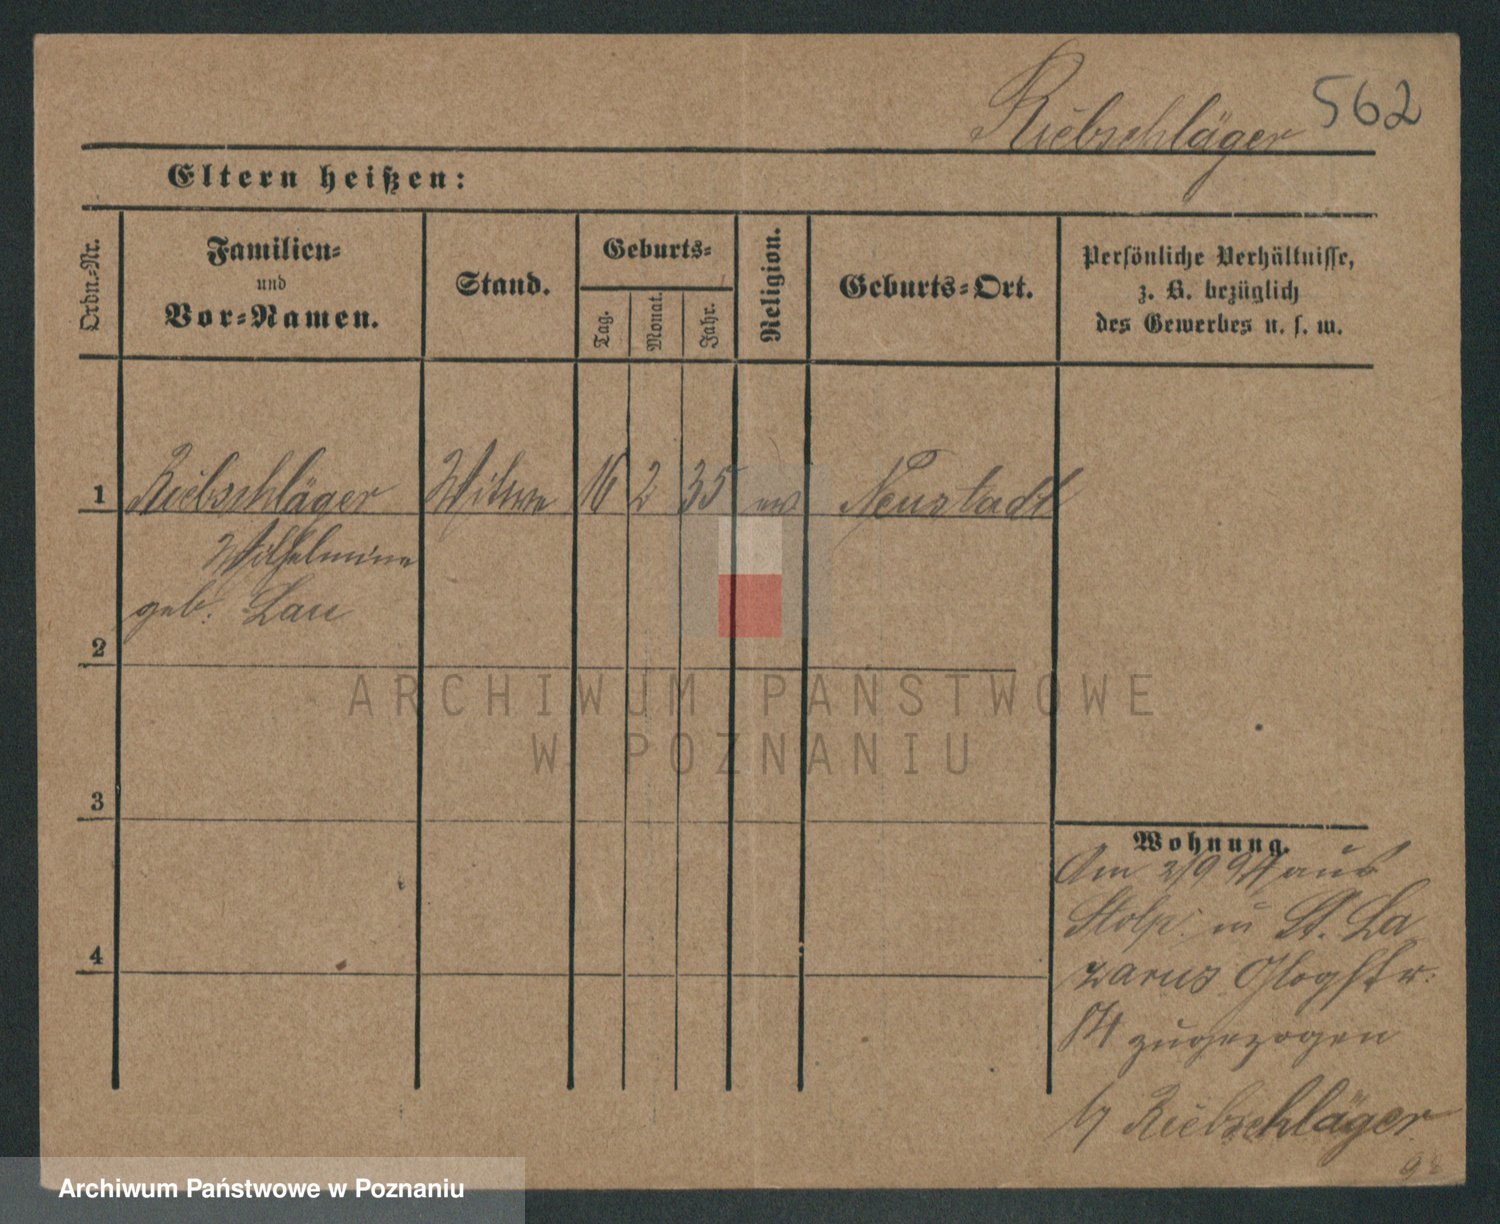 Riebschläger 562
Eltern heißen:
Ordn.-Nr.
Familien-
und
Vor-Namen.
Stand.
Geburts-
Tag.
Monat.
Jahr.
Religion.
Geburts-Ort.
Persönliche Verhältnisse,
z. B. bezüglich
des Gewerbes u. s. w.
1 Riebschläger Witwe 16 2 35 ev Neustadt
Wilhelmine
geb. Lau
2
3
4
Wohnung.
Am 2/9 97 aus
Stolp in St. La
zarus Glogstr.
zugezogen
b/ Riebschläger
ARCHIWUM PAŃSTWOWE
W POZNANIU
Archiwum Państwowe w Poznaniu